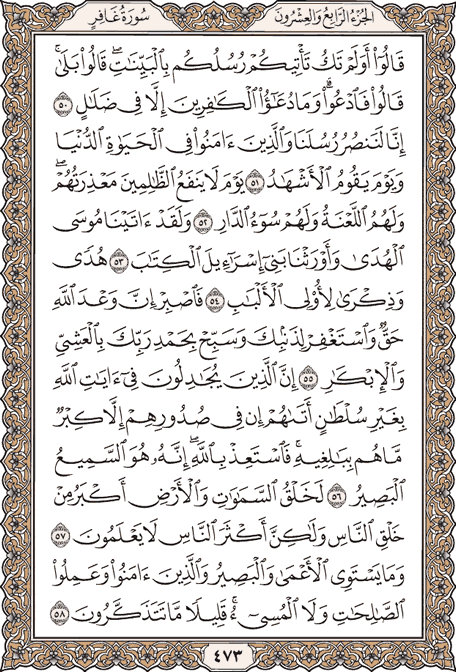 الجزء الرابع والعشرون
سورة غافر
قَالُوٓا۟ أَوَلَمْ تَكُ تَأْتِيكُمْ رُسُلُكُم بِٱلْبَيِّنَـٰتِ ۖ قَالُوا۟ بَلَىٰ ۚ
قَالُوا۟ فَٱدْعُوا۟ ۗ وَمَا دُعَـٰٓؤُا۟ ٱلْكَـٰفِرِينَ إِلَّا فِى ضَلَـٰلٍ ٥٠
إِنَّا لَنَنصُرُ رُسُلَنَا وَٱلَّذِينَ ءَامَنُوا۟ فِى ٱلْحَيَوٰةِ ٱلدُّنْيَا
وَيَوْمَ يَقُومُ ٱلْأَشْهَـٰدُ ٥١ يَوْمَ لَا يَنفَعُ ٱلظَّـٰلِمِينَ مَعْذِرَتُهُمْ ۖ
وَلَهُمُ ٱللَّعْنَةُ وَلَهُمْ سُوٓءُ ٱلدَّارِ ٥٢ وَلَقَدْ ءَاتَيْنَا مُوسَى
ٱلْهُدَىٰ وَأَوْرَثْنَا بَنِىٓ إِسْرَٰٓءِيلَ ٱلْكِتَـٰبَ ٥٣ هُدًى
وَذِكْرَىٰ لِأُو۟لِى ٱلْأَلْبَـٰبِ ٥٤ فَٱصْبِرْ إِنَّ وَعْدَ ٱللَّهِ
حَقٌّ وَٱسْتَغْفِرْ لِذَنۢبِكَ وَسَبِّحْ بِحَمْدِ رَبِّكَ بِٱلْعَشِىِّ
وَٱلْإِبْكَـٰرِ ٥٥ إِنَّ ٱلَّذِينَ يُجَـٰدِلُونَ فِىٓ ءَايَـٰتِ ٱللَّهِ
بِغَيْرِ سُلْطَـٰنٍ أَتَىٰهُمْ ۙ إِن فِى صُدُورِهِمْ إِلَّا كِبْرٌ
مَّا هُم بِبَـٰلِغِيهِ ۚ فَٱسْتَعِذْ بِٱللَّهِ ۖ إِنَّهُۥ هُوَ ٱلسَّمِيعُ
ٱلْبَصِيرُ ٥٦ لَخَلْقُ ٱلسَّمَـٰوَٰتِ وَٱلْأَرْضِ أَكْبَرُ مِنْ
خَلْقِ ٱلنَّاسِ وَلَـٰكِنَّ أَكْثَرَ ٱلنَّاسِ لَا يَعْلَمُونَ ٥٧
وَمَا يَسْتَوِى ٱلْأَعْمَىٰ وَٱلْبَصِيرُ وَٱلَّذِينَ ءَامَنُوا۟ وَعَمِلُوا۟
ٱلصَّـٰلِحَـٰتِ وَلَا ٱلْمُسِىٓءُ ۚ قَلِيلًا مَّا تَتَذَكَّرُونَ ٥٨
٤٧٣